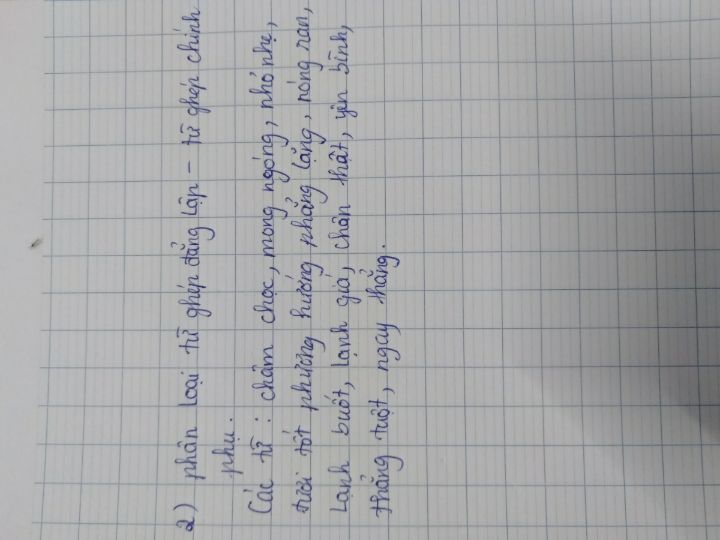 2) phân loại từ ghép đẳng lập - từ ghép chính
phụ.
Các từ : châm chọc, mong ngóng, nhỏ nhẹ,
tươi tốt phương hướng phẳng lặng, nóng ran,
lạnh buốt, lạnh giá, chân thật, yên bình,
thẳng tuột, ngay thẳng.